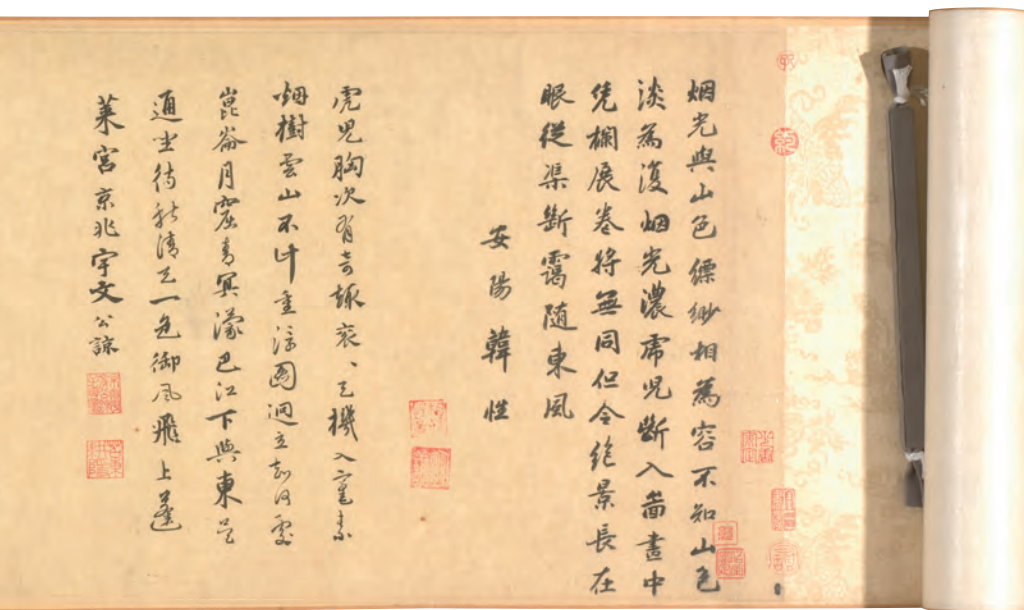 烟光與山色縹緲相為容不知山色
淡為復烟光濃虎児斷入畵畫中
凭欄展卷將無同但令絶景長在
眼從渠斷靄隨東風
安陽韓性
虎児胸次有奇趣衮、天機入豪素
烟樹雲山不計重淙圖迥立知何處
崑崙月窟青冥濛巴江下與東
通坐待秋清天一色御風飛上蓬
萊宮京兆宇文公諒